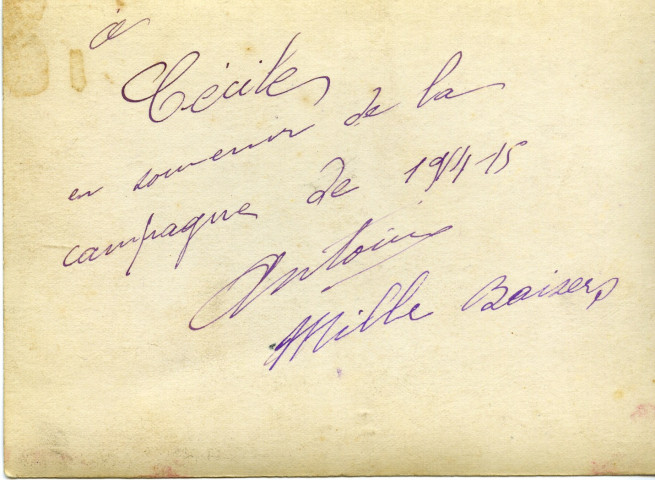 à
Cécile
en souvenir de la
campagne de 1914-15
Antoine
Mille Baisers